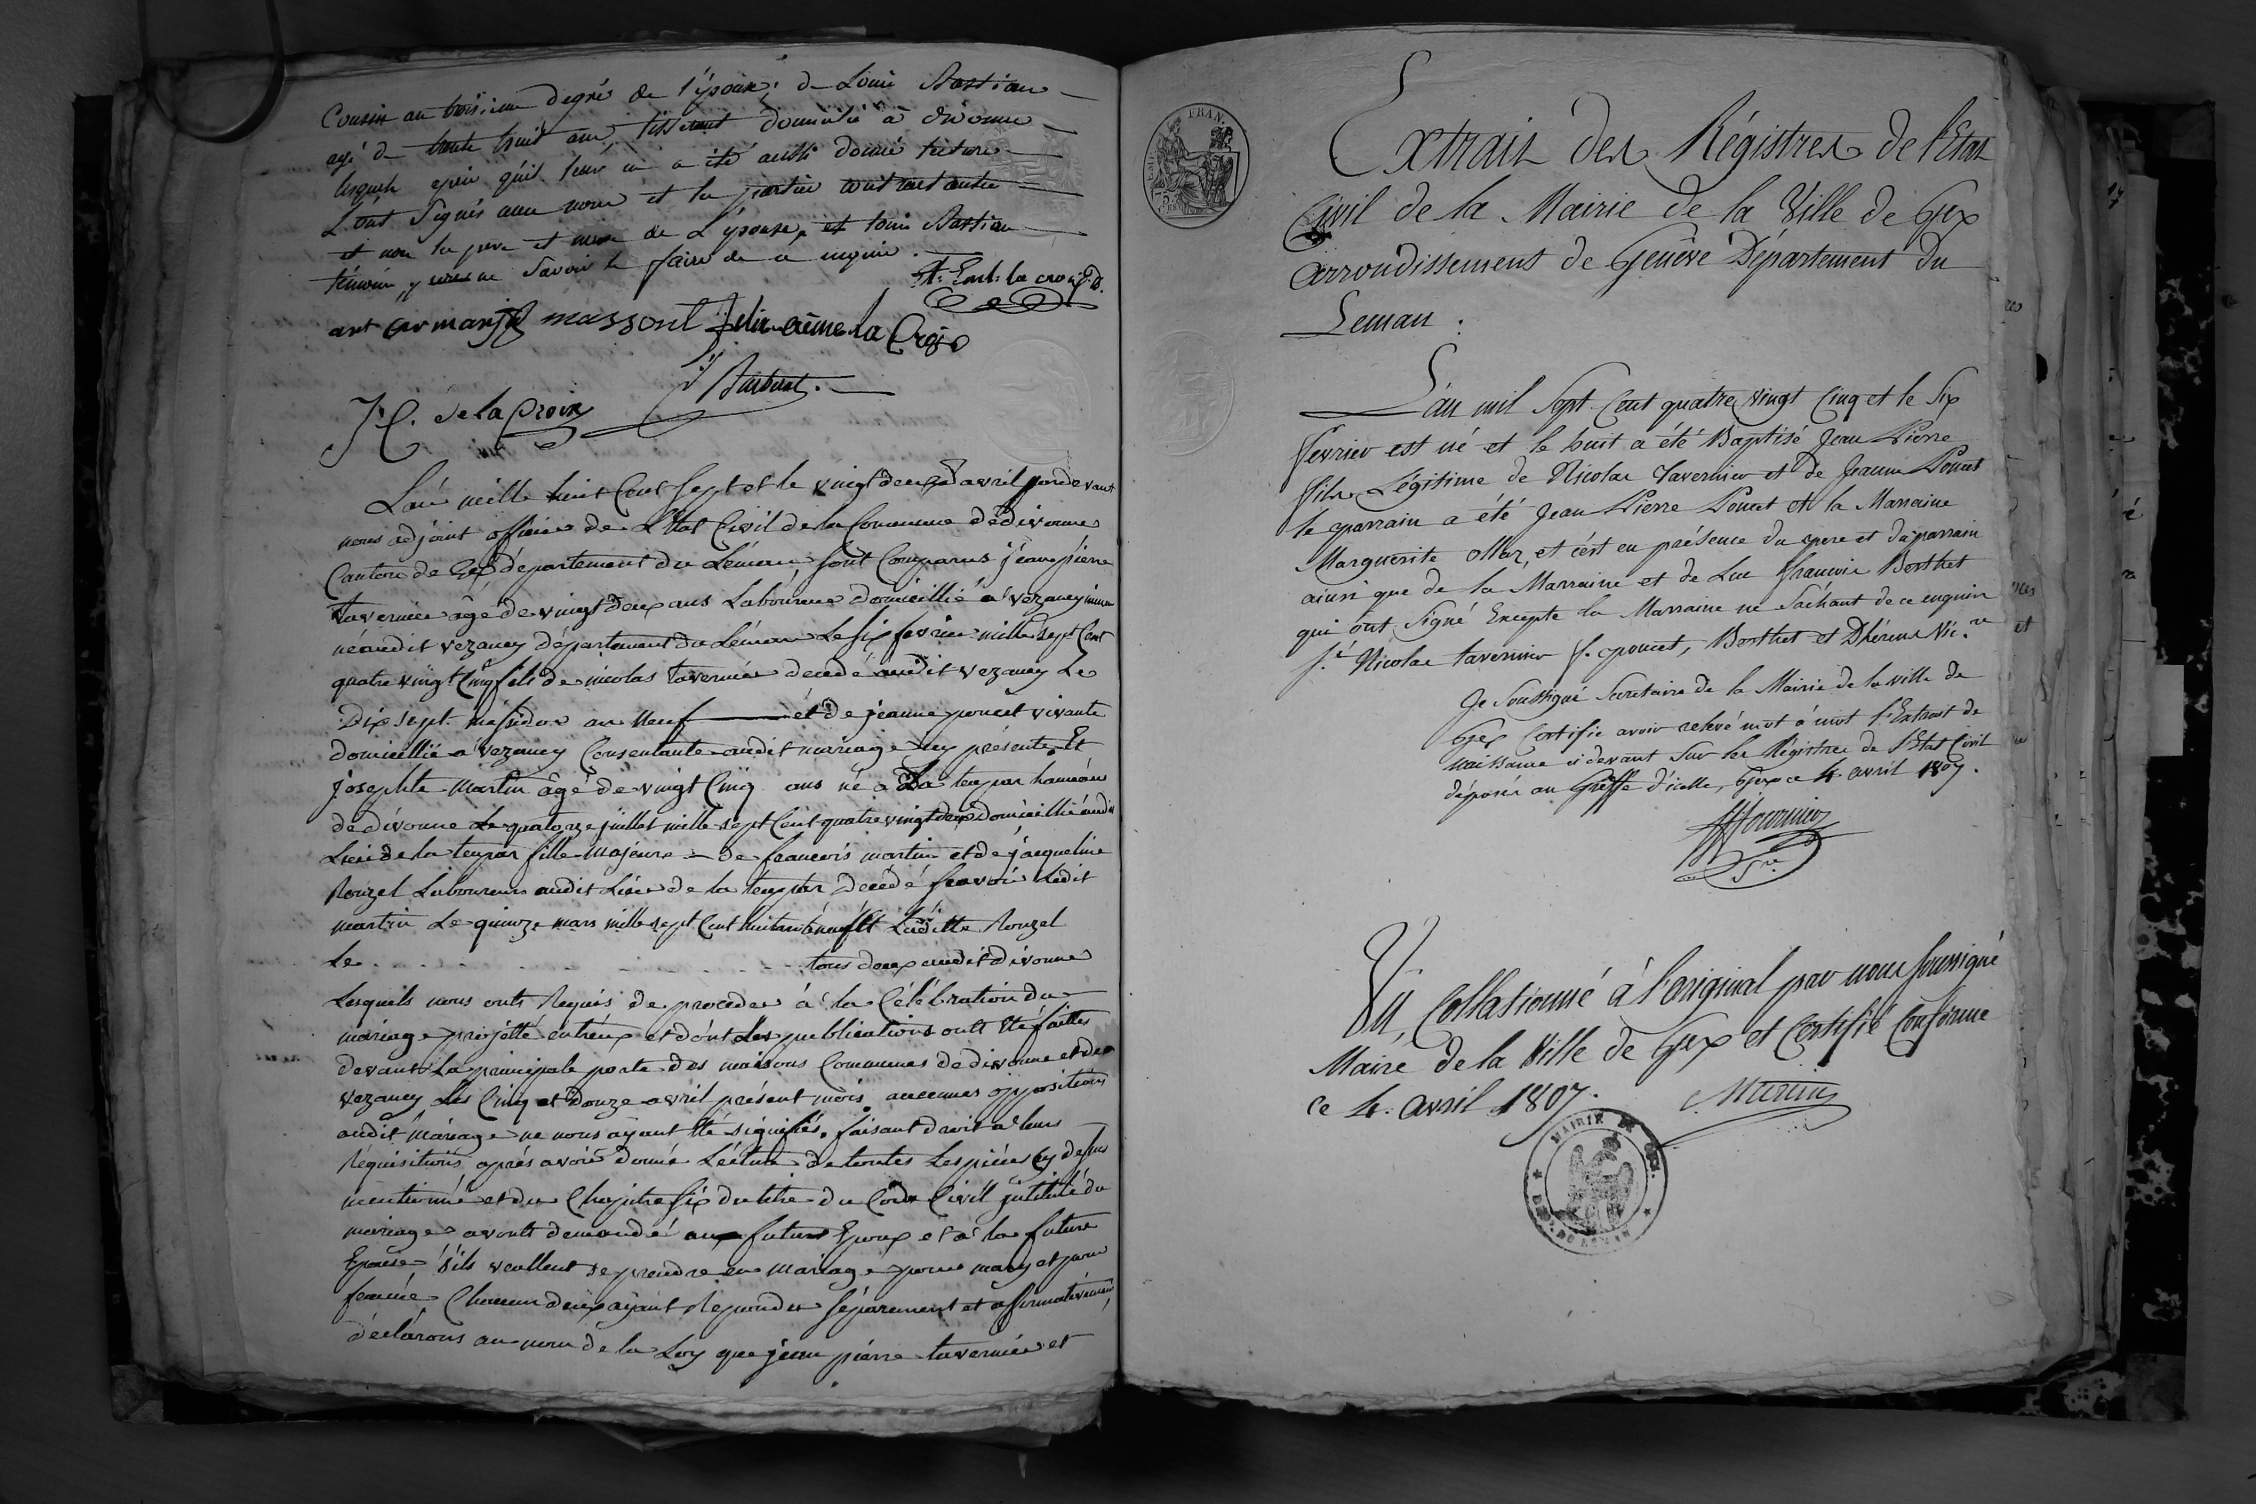 Cousin au troisieme degré de l'épouse; de Louis Bastian
agé de trente huit ans tisserant domicilié à divonne
lesquels après qu'il leur en a été aussi donné lecture
L'ont Signés avec nous et les parties contractantes
et non les pere et mere de L'épouse, et Louis Bastian
témoin, pour ne Savoir le faire de ce enquis.
massont felix aimé la Croix
J. C. de la Croix
L'an mille huit Cent Sept et le vingt deux d'avril pardevant
nous adjoint officier de L'Etat Civil de la Commune de divonne
Canton de Gex département du Léman sont Comparus jean pierre
taverniér âgé de vingt deux ans Laboureur Domicillié a vezancy mineur
né audit vezancy département du Léman Le six fevrier mille sept Cent
quatre vingt Cinq fils de nicolas taverniér décédé audit vezancy Le
Dix sept mésidor an neuf et de jeanne poncet vivante
domicillié a vezancy Consentante audit mariage icy présente Et
josephte Martin âgé de vingt Cinq ans né a La teupar hameau
de divonne Le quatorze juillet mille sept Cent quatre vingt deux domicillié audit
Lieu de la teupar fille Majeure de francois martin et de jacqueline
Rouzel Laboureurs audit Lieu de la teupar décédé scavoir Ledit
martin Le quinze mars mille sept Cent huitante neuf Et Laditte Rouzel
Le . . . . . . . . . tous deux audit divonne
Lesquels nous onts Requis de proceder à la Célébration du
mariage projetté entreux et dont Les publications onts Eté faittes
devant La principale porte des maisons Communes de divonne et de
vezancy Les Cinq et Douze avril présent mois aucunes oppositions
audit mariage ne nous ayant Eté signifiés. faisant droit a leurs
Réquisitions aprés avoir donné Lecture de toutes Les piéces cy dessus
mentionné et du Chapitre six du titre du Code Civil intitulé du
mariage avonts demandé au futur Epoux et a la future
Epouse s'ils veullent se prendre en mariage pour mary et pour
femme Chacun deux ayant Repondu séparement et affirmativement,
déclarons au nom de la Loy que jean pierre taverniér et
Extrait des Régistres de l'Etat
Civil de la Mairie de la Ville de Gex
arrondissement de Genêve Département du
Leman.
L'an mil Sept Cent quatre vingt Cinq et le Six
fevrier est né et le huit a été Baptisé Jean Pierre
fils Légitime de Nicolas Tavernier et de Jeanne Poncet
le parrain a été Jean Pierre Poncet et la Marraine
Marguerite et c'est en présence du pere et du parrain
ainsi que de la Marraine et de Luc François Berthet
qui ont Signé Excepte la Marraine ne Sachant de ce enquise
s.é Nicolas tavernier f. poncet, Berthet et Dhérens Vic.re
Je Soussigné Secretaire de la Mairie de la ville de
Gex Certifie avoir relevé mot à mot l'Extrait de
naissance ci devant Sur les Régistres de l'Etat Civil
déposés au Greffe d'icelle, Gex ce 4 avril 1807.
Sre
Vu, Collationné à l'original par nous soussigné
Maire de la Ville de Gex et Certifié Conforme
ce 4. avril 1807.
MAIRIE DE GEX.
DEPT. DU LEMAN